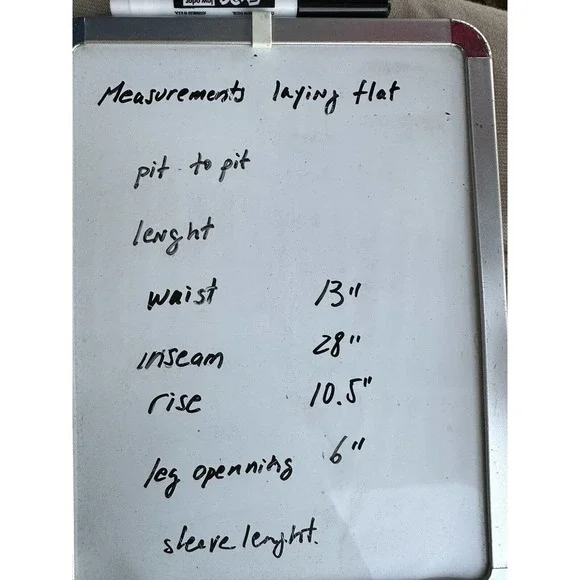 low odor
Measurements laying flat
pit to pit
lenght
waist 13"
inseam 28"
rise 10.5"
leg openning 6"
sleave lenght.